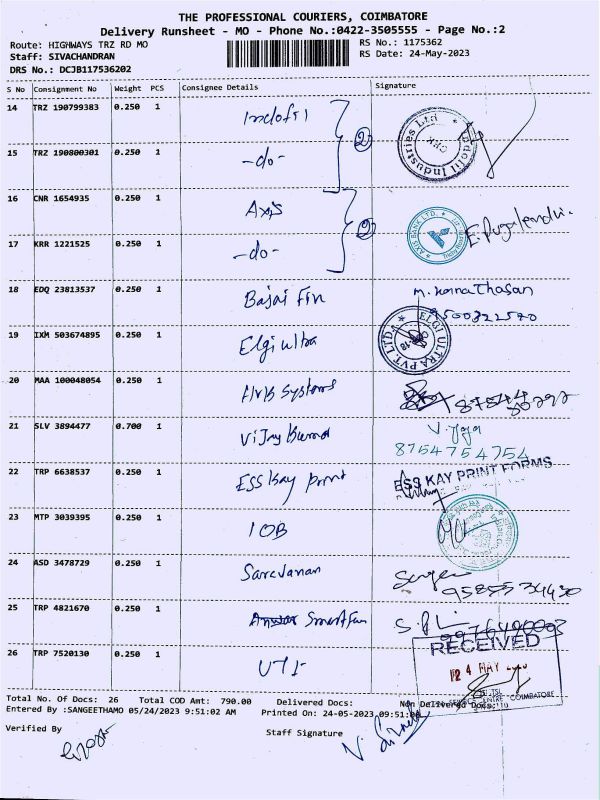 THE PROFESSIONAL COURIERS, COIMBATORE
Delivery Runsheet - MO - Phone No.:0422-3505555 - Page No.:2
Route: HIGHWAYS TRZ RD MO
RS No.: 1175362
Staff: SIVACHANDRAN
RS Date: 24-May-2023
DRS No.: DCJB117536202
S No Consignment No Weight PCS Consignee Details Signature
14 TRZ 190799383 0.250 1 Indofil
Indofil Industries Ltd
2
15 TRZ 190800301 0.250 1 -do-
16 CNR 1654935 0.250 1 Axis
AXIS BANK LTD.
2
E. Pugalendhi.
17 KRR 1221525 0.250 1 -do-
18 EDQ 23813537 0.250 1 Bajaj Fin
9500322570
19 IXM 503674895 0.250 1 Elgi ultra
ELGI ULTRA PVT. LTD
20 MAA 100048054 0.250 1 Systems
21 SLV 3894477 0.700 1 Vijay
8754754754
22 TRP 6638537 0.250 1 ESS Kay Print
ESS KAY PRINT FORMS
23 MTP 3039395 0.250 1 IOB
24 ASD 3478729 0.250 1 Saravanan
9585534430
25 TRP 4821670 0.250 1
26 TRP 7520130 0.250 1 UTI
RECEIVED
24 MAY
COIMBATORE
Total No. Of Docs: 26 Total COD Amt: 790.00 Delivered Docs: Non Delivered Docs:
Entered By :SANGEETHAMO 05/24/2023 9:51:02 AM Printed On: 24-05-2023 09:51:
Verified By
Staff Signature